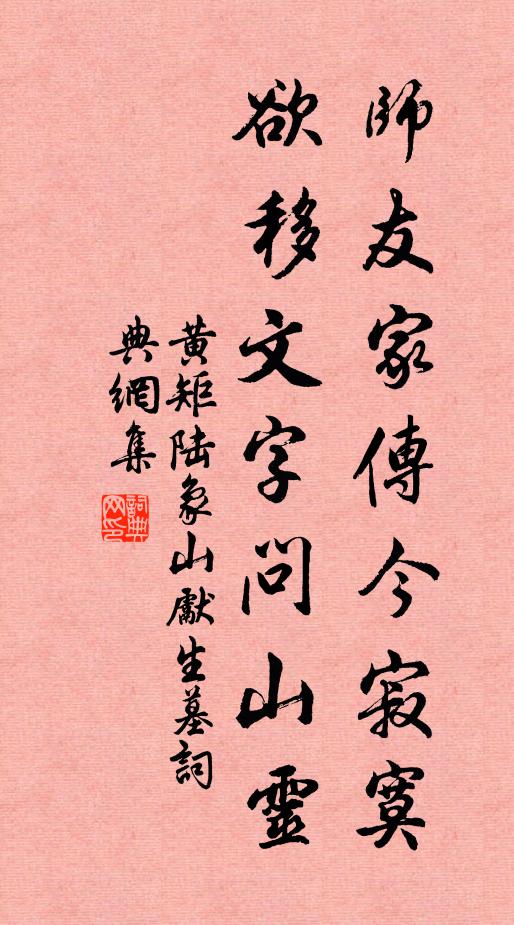 師友家傳今寂寞
欲移文字問山靈
黄矩陆象山獻生墓詞
典網集
詞典网印